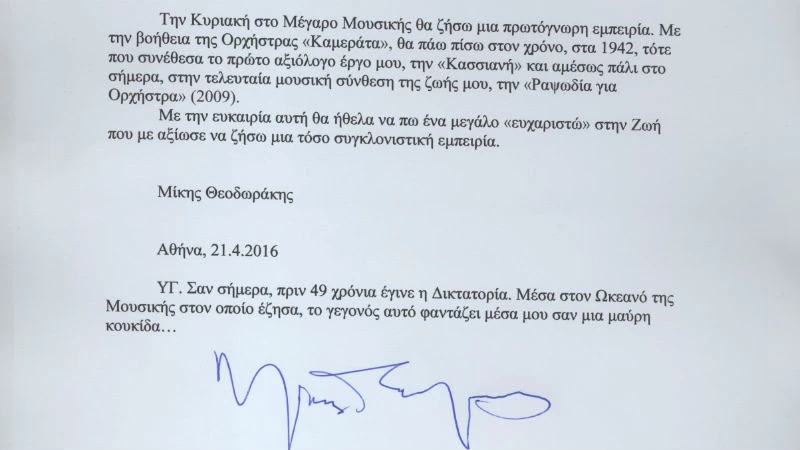 Την Κυριακή στο Μέγαρο Μουσικής θα ζήσω μια πρωτόγνωρη εμπειρία. Με
την βοήθεια της Ορχήστρας «Καμεράτα», θα πάω πίσω στον χρόνο, στα 1942, τότε
που συνέθεσα το πρώτο αξιόλογο έργο μου, την «Κασσιανή» και αμέσως πάλι στο
σήμερα, στην τελευταία μουσική σύνθεση της ζωής μου, την «Ραψωδία για
Ορχήστρα» (2009).
Με την ευκαιρία αυτή θα ήθελα να πω ένα μεγάλο «ευχαριστώ» στην Ζωή
που με αξίωσε να ζήσω μια τόσο συγκλονιστική εμπειρία.
Μίκης Θεοδωράκης
Αθήνα, 21.4.2016
ΥΓ. Σαν σήμερα, πριν 49 χρόνια έγινε η Δικτατορία. Μέσα στον Ωκεανό της
Μουσικής στον οποίο έζησα, το γεγονός αυτό φαντάζει μέσα μου σαν μια μαύρη
κουκίδα…